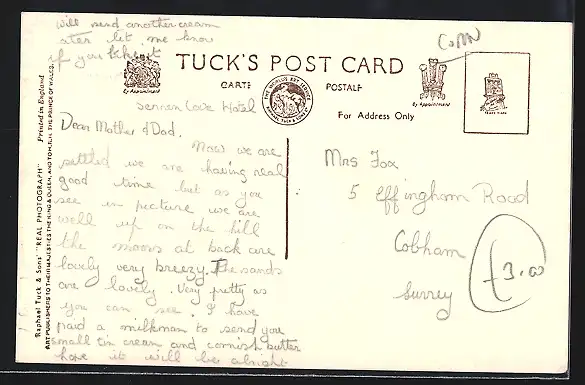 will send another cream
after let me know
if you like it
TUCK'S POST CARD
CARTE POSTALE
By Appointment
THE WORLD'S ART SERVICE
RAPHAEL TUCK & SONS LTD
By Appointment
TRADE MARK
CORN
For Address Only
Raphael Tuck & Sons' "REAL PHOTOGRAPH" Printed in England
ART PUBLISHERS TO THEIR MAJESTIES THE KING & QUEEN, AND TO H.R.H. THE PRINCE OF WALES.
Sennen Cove Hotel
Dear Mother & Dad.
Now we are
settled we are having real
good time but as you
see in picture we are
well up on the hill
the moors at back are
lovely very breezy. The sands
are lovely. Very pretty as
you can see. I have
paid a milkman to send you
small tin cream and cornish butter
hope it will be alright
Mrs Fox
5 Effingham Road
Cobham
Surrey
£3.00